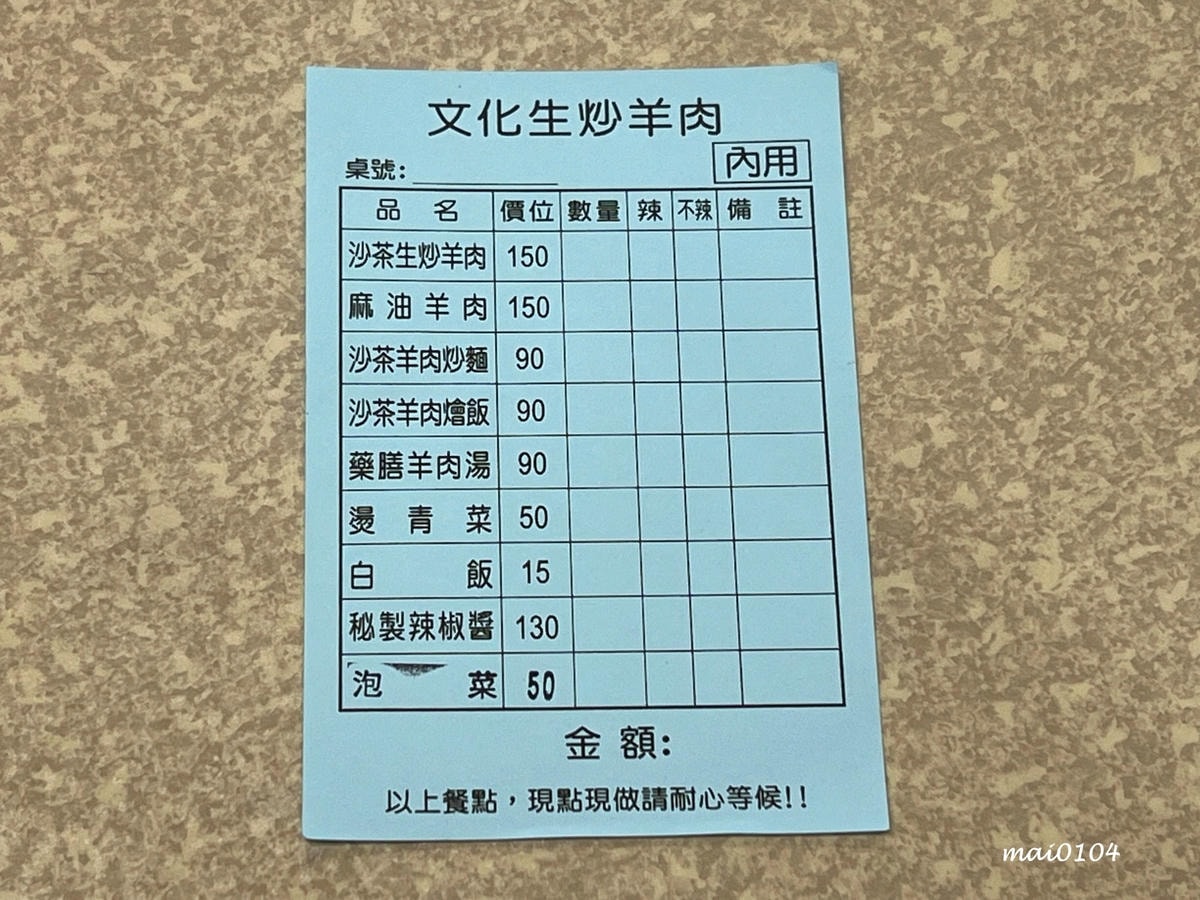 文化生炒羊肉
桌號:
內用
品名 價位 數量 辣 不辣 備註
沙茶生炒羊肉 150
麻油羊肉 150
沙茶羊肉炒麵 90
沙茶羊肉燴飯 90
藥膳羊肉湯 90
燙青菜 50
白飯 15
秘製辣椒醬 130
泡菜 50
金額:
以上餐點，現點現做請耐心等候!!
mai0104